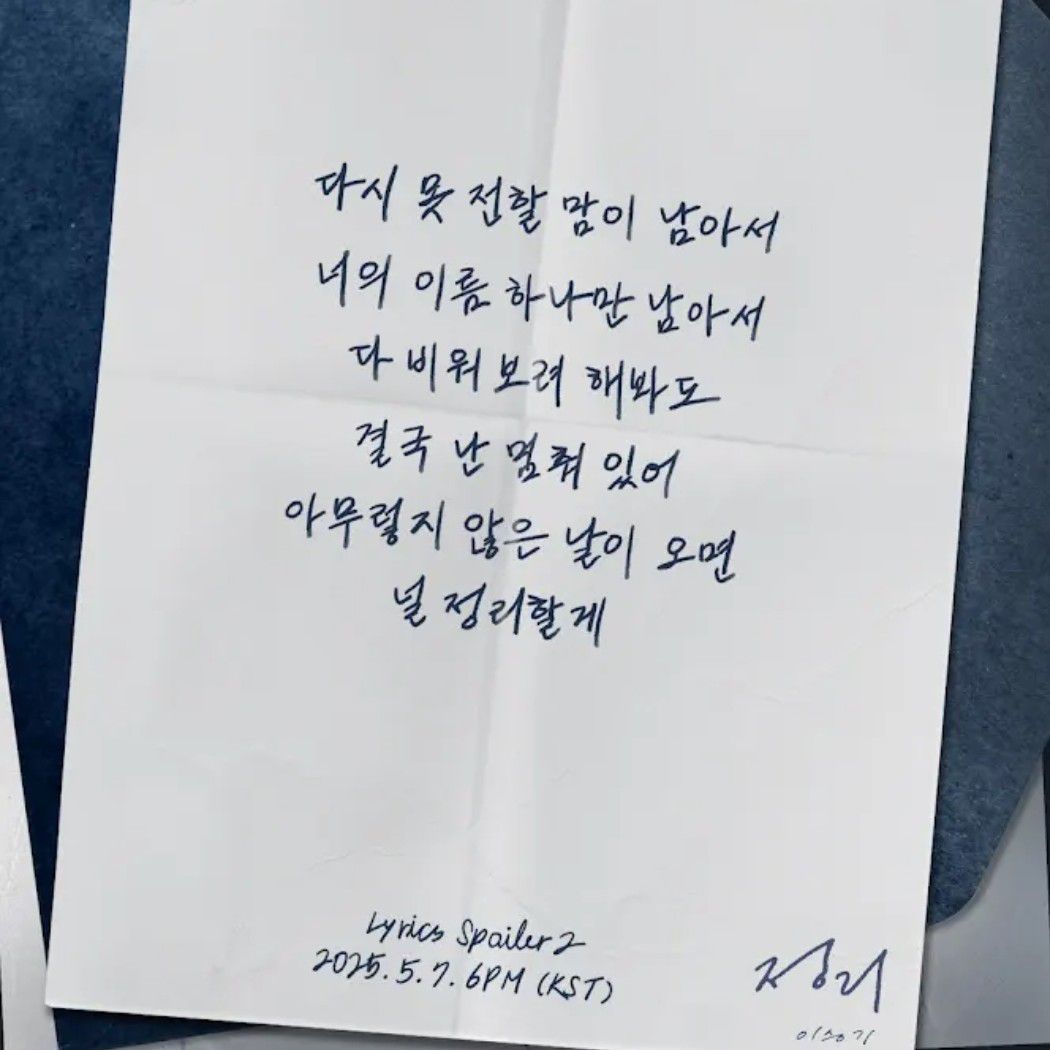 다시 못 전할 맘이 남아서
너의 이름 하나만 남아서
다 비워보려 해봐도
결국 난 멈춰 있어
아무렇지 않은 날이 오면
널 정리할게
Lyrics Spoiler 2
2025.5.7. 6PM (KST)
정리
이승기